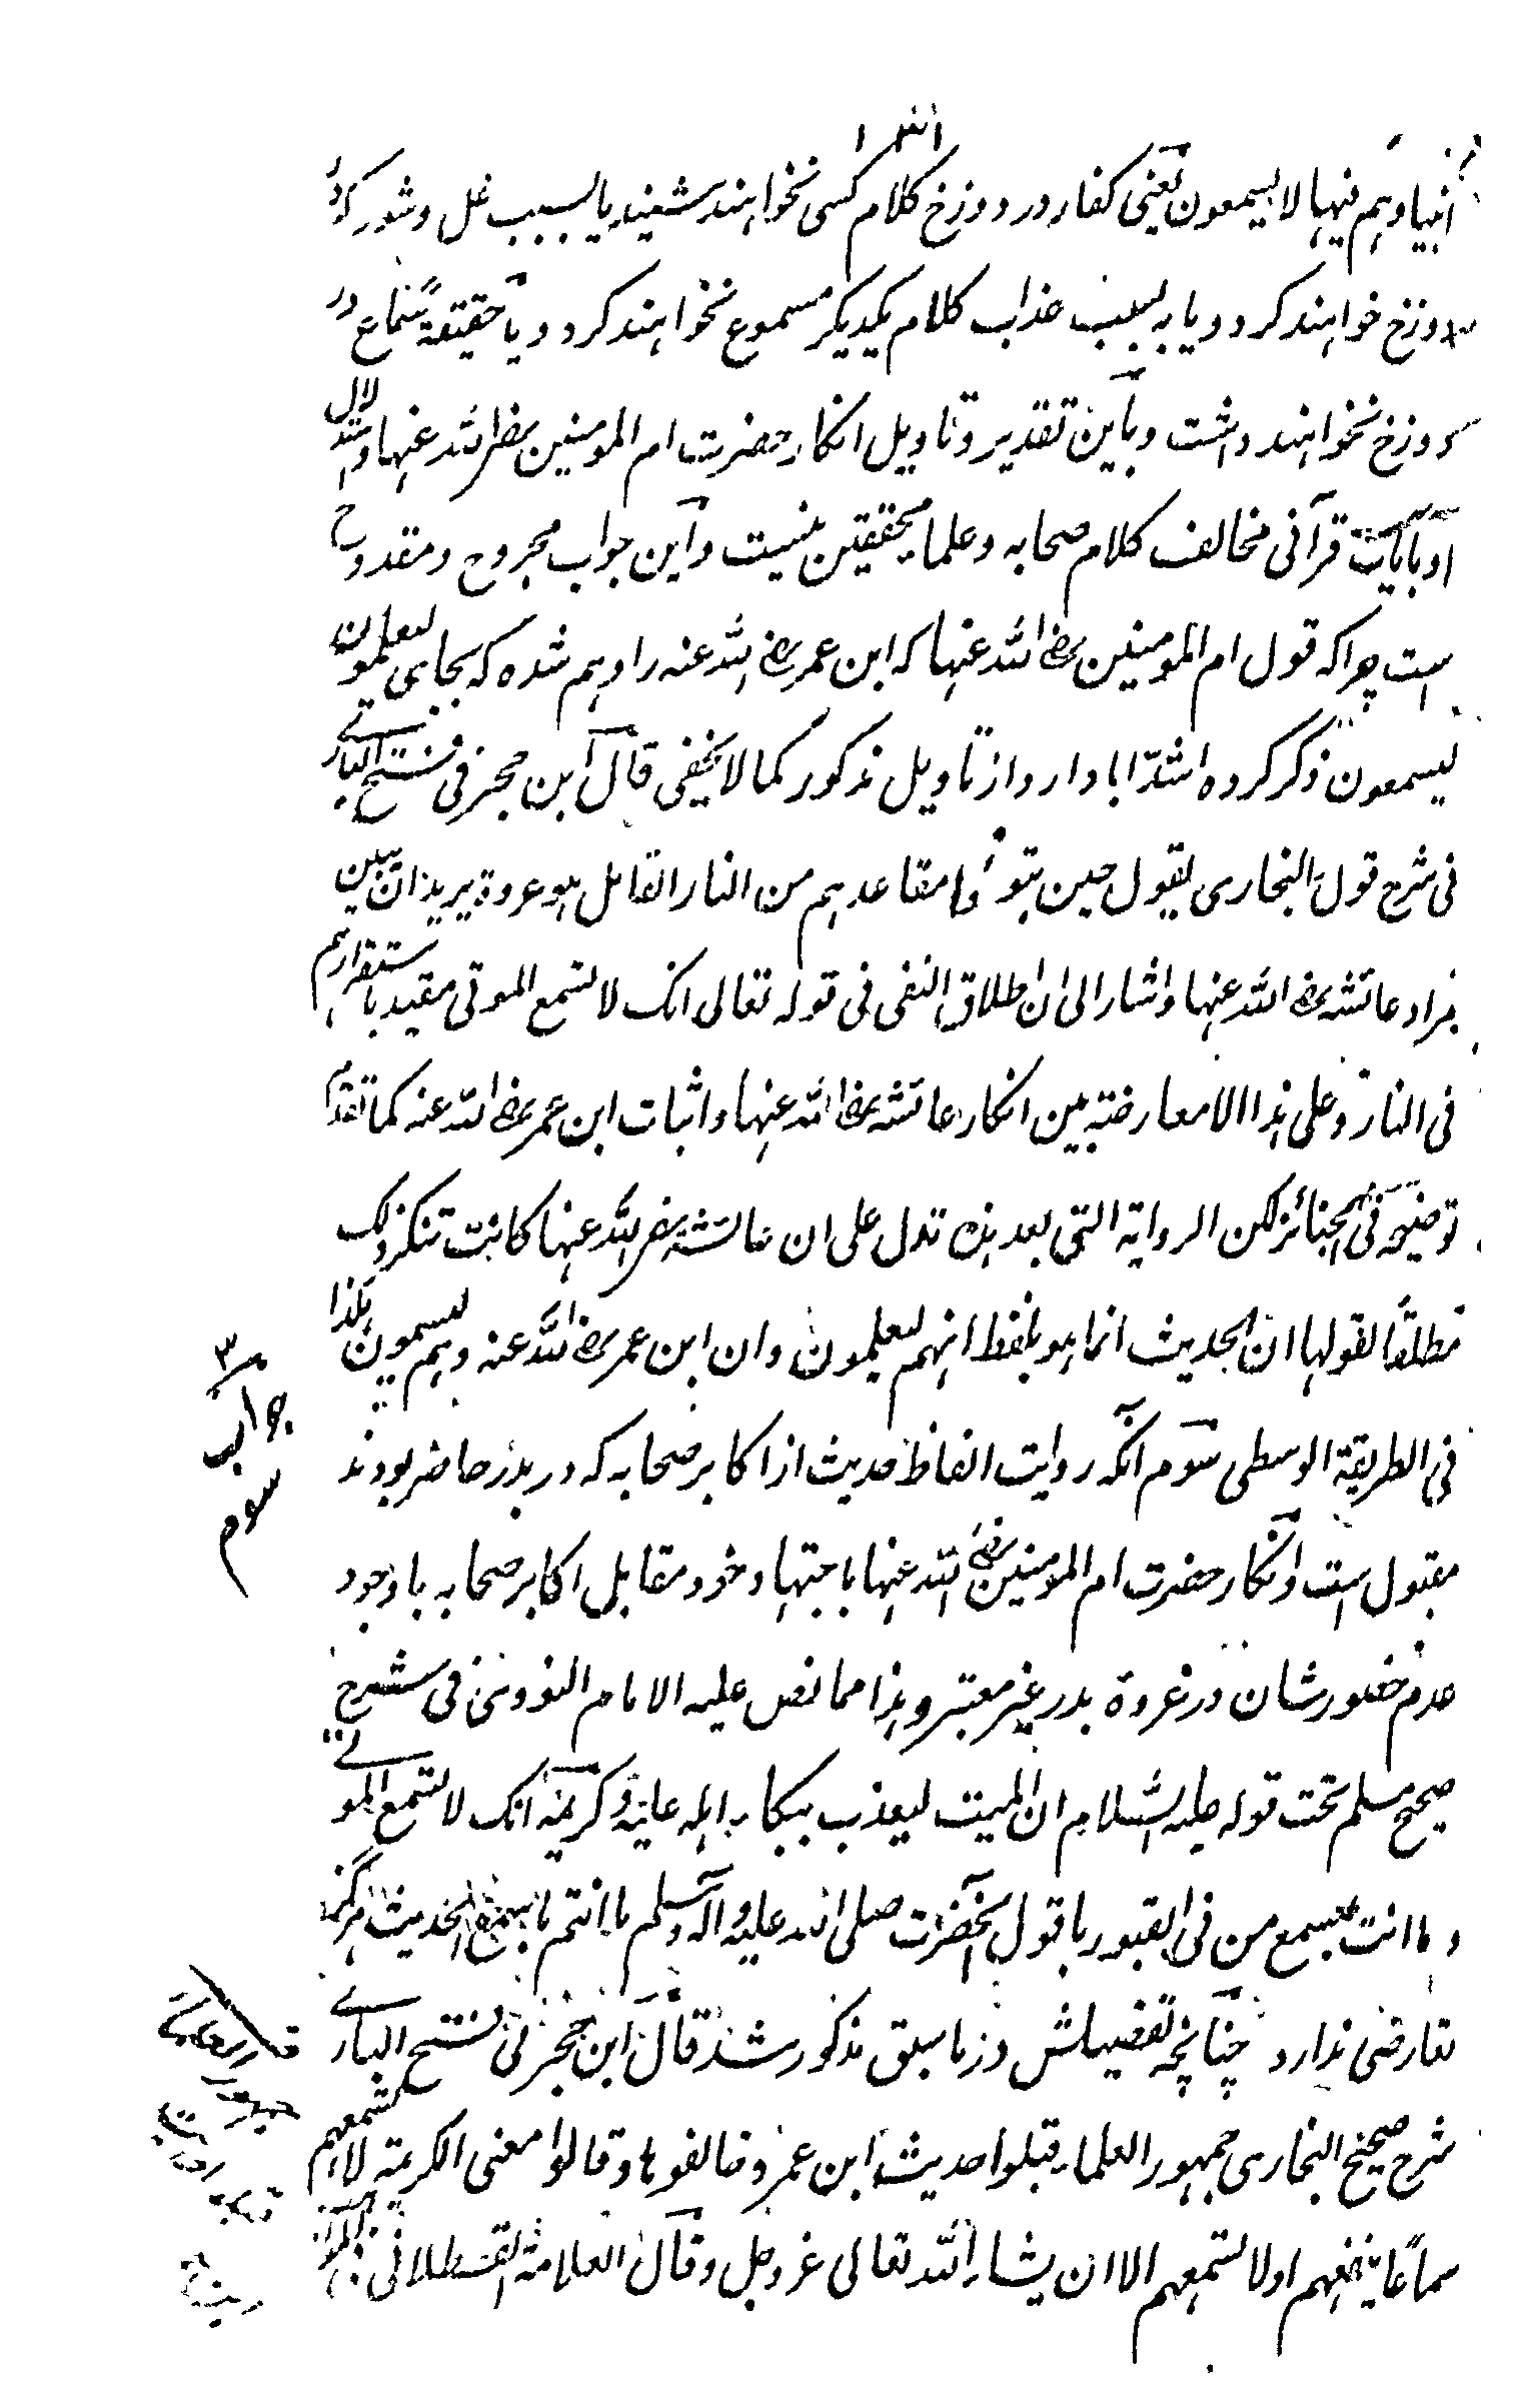 انبیا وہم فیہا لا یسمعون یعنی کفار در دوزخ کلام کسی نخواہند شنید یا بسبب غل و شور کہ در
دوزخ خواہند کرد و یا بہ سبب عذاب کلام یکدیگر مسموع نخواہند کرد و یا حقیقةً سماع در
دوزخ نخواہند داشت و باین تقدیر و تاویل انکار حضرت ام المومنین رضی اللہ عنہا و استدلال
او بآیات قرآنی مخالف کلام صحابہ و علماء محققین نیست و این جواب مجروح و مقدوح
است چرا کہ قول ام المومنین رضی اللہ عنہا کہ ابن عمر رضی اللہ عنہ را وہم شدہ کہ بجای لیعلمون
لیسمعون ذکر کردہ اشدّ ابا دارد از تاویل مذکور کما لا یخفی قال ابن حجر فی فتح الباری
فی شرح قول البخاری یقول حین تبوّءوا مقاعدہم من النار القائل ہو عروة یرید ان یبین
مراد عائشہ رضی اللہ عنہا و اشار الی ان اطلاق النفی فی قولہ تعالی انک لا تسمع الموتی مقید باستقرارہم
فی النار و علی ہذا لا معارضة بین انکار عائشہ رضی اللہ عنہا و اثبات ابن عمر رضی اللہ عنہ کما تقدم
توضیحہ فی الجنائز لکن الروایة التی بعد ہذہ تدل علی ان عائشہ رضی اللہ عنہا کانت تنکر ذلک
مطلقًا لقولہا ان الحدیث انما ہو بلفظ انہم لیعلمون و ان ابن عمر رضی اللہ عنہ وہم لیسمعون ہکذا
فی الطریقة الوسطی سوم آنکہ روایت الفاظ حدیث از اکابر صحابہ کہ در بدر حاضر بودند
مقبول است و انکار حضرت ام المومنین رضی اللہ عنہا باجتہاد خود مقابل اکابر صحابہ با وجود
عدم حضور شان در غزوة بدر غیر معتبر و ہذا مما نص علیہ الامام النووی فی شرح
صحیح مسلم تحت قولہ علیہ السلام ان المیت لیعذب ببکاء اہلہ علیہ و کریمہ انک لا تسمع الموتی
و ما انت بمسمع من فی القبور با قول آنحضرت صلی اللہ علیہ و آلہ وسلم ما انتم باسمع الحدیث ہرگز
تعارضی ندارد چنانچہ تفصیلش در ما سبق مذکور شد قال ابن حجر فی فتح الباری
شرح صحیح البخاری جمہور العلماء قبلوا حدیث ابن عمر و خالفوہا و قالوا معنی الکریمة لا تسمعہم
سماعًا ینفعہم او لا تسمعہم الا ان یشاء اللہ تعالی عز و جل و قال العلامة القسطلانی فی
۳
جواب
سوم